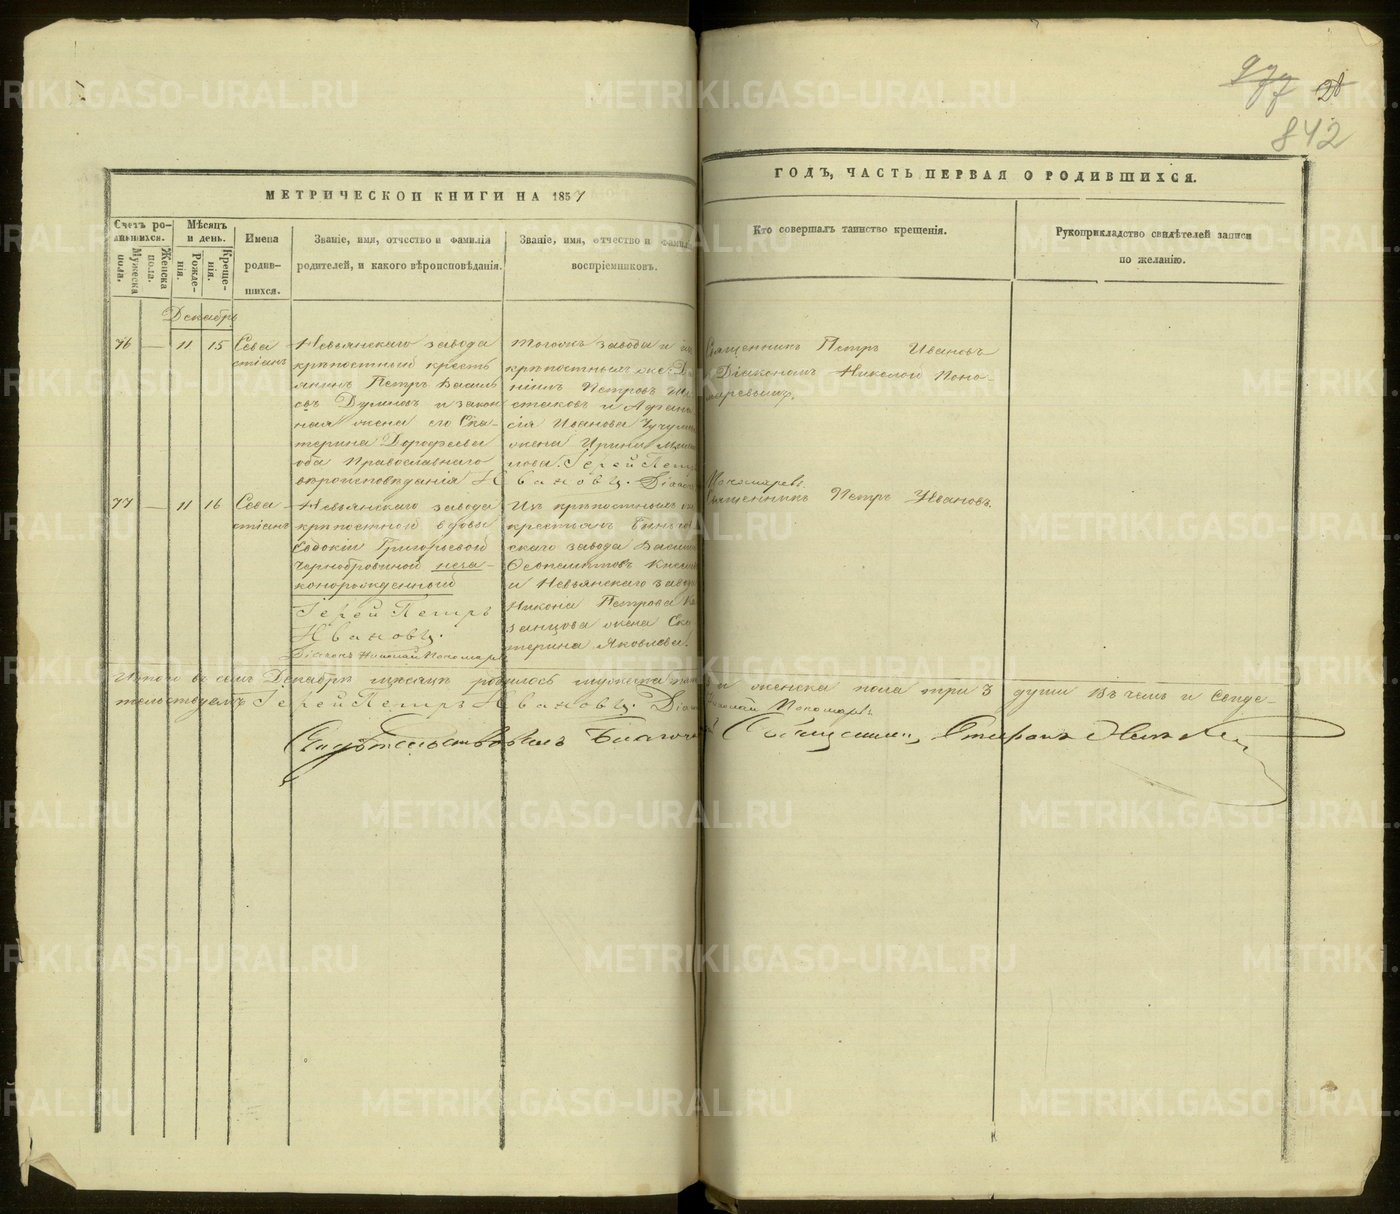 977 28
842
МЕТРИЧЕСКОЙ КНИГИ НА 1857
ГОДЪ, ЧАСТЬ ПЕРВАЯ О РОДИВШИХСЯ.
Счетъ родившихся.
Мужеска пола.
Женска пола.
Мѣсяцъ и день.
Рожденія.
Крещенія.
Имена родившихся.
Званіе, имя, отчество и фамилія
родителей, и какого вѣроисповѣданія.
Званіе, имя, отчество и фамилія
воспріемниковъ.
Кто совершалъ таинство крещенія.
Рукоприкладство свидѣтелей записи
по желанію.
Декабрь
76 — 11 15 Сева
стіанъ
Невьянскаго завода
крѣпостный кресть
янинъ Петръ Василь
евъ и закон
ная жена его Ека-
терина Дорофеева
оба Православнаго
вѣроисповѣданія
Тогожъ завода и
крѣпостныя же
Петровъ
и Афана
сія Иванова
жена Ирина
Іерей Петръ
Ивановъ. Діаконъ
Священникъ Петръ Ивановъ
съ Діакономъ Николой Поно-
маревымъ.
Пономаревъ
77 — 11 16 Сева
стіанъ
Невьянскаго завода
крѣпостной вдовы
Евдокіи Григорьевой
Чернобровиной неза-
коннорожденный
Іерей Петръ
Ивановъ.
Діаконъ Николай Пономаревъ
Изъ крѣпостныхъ
крестьянъ Бынгов
скаго завода Василій
и Невьянскаго завода
Никона Петрова Ка
занцова жена Ека
терина Яковлева.
Священникъ Петръ Ивановъ.
Итого въ семъ Декабрѣ мѣсяцѣ родилось мужеска пола
и женска пола три 3 души Въ чемъ и свиде-
тельствуемъ Іерей Петръ Ивановъ. Діаконъ
Николай Пономаревъ
Свидѣтельствовалъ Благочинный Священникъ Стефанъ
METRIKI.GASO-URAL.RU